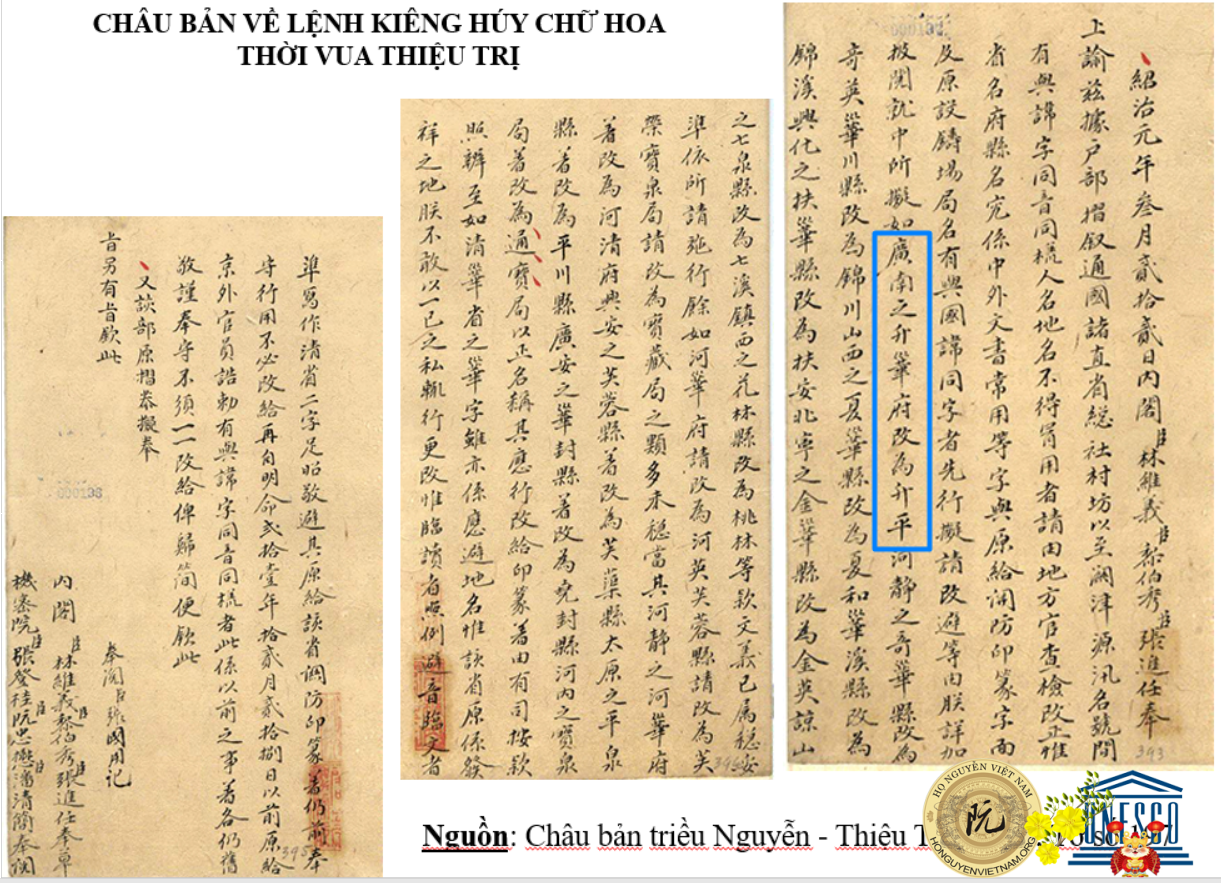 CHÂU BẢN VỀ LỆNH KIÊNG HÚY CHỮ HOA
THỜI VUA THIỆU TRỊ
紹治元年叁月貳拾貳日内閣臣林維義臣黎伯秀臣張進任奉
上諭茲據户部摺叙通國諸直省総社村坊以至關津源汛名號間
有與諱字同音同様人名地名不得冒用者請由地方官查檢改正惟
省名府縣名究係中外文書常用等字與原給関防印篆字面
及原設鑄塲局名有與國諱同字者先行擬請改避等由朕詳加
披閲就中所擬如廣南之升華府改為升平河静之奇華縣改為
奇英華川縣改為錦川山西之夏華縣改為夏和華溪縣改為
錦溪興化之扶華縣改為扶安北寧之金華縣改為金英諒山
之七泉縣改為七溪鎮西之花林縣改為桃林等欵文義已屬穏安
準依所請施行餘如河華府請改為河英芙蓉縣請改為芙
蕖寶泉局請改為寶藏局之類多未穏當其河静之河華府
著改為河清府興安之芙蓉縣著改為芙蕖縣太原之平泉
縣著改為平川縣廣安之華封縣著改為堯封縣河内之寶泉
局著改為通寶局以正名稱其應行改給印篆著由有司按欵
照辦至如清華省之華字雖亦係應避地名惟該省原係發
祥之地朕不敢以一己之私輒行更改惟臨讀者照例避音臨文者
準寫作清省二字足昭敬避其原給該省関防印篆著仍前奉
守行用不必改給再自明命貳拾壹年拾貳月貳拾捌日以前原給
京外官員誥勅有與諱字同音同様者此係以前之事著各仍舊
敬謹奉守不須一一改給俾歸簡便欽此
又該部原摺恭擬奉
旨另有旨欽此
奉閲臣張國用记
内閣臣林維義臣黎伯秀臣張進任奉草
機密院臣張登桂臣阮忠懋臣潘清簡奉閲
000198
393
395
Nguồn: Châu bản triều Nguyễn - Thiệu
HỌ NGUYỄN VIỆT NAM
阮
HONGUYENVIETNAM.ORG
UNESCO